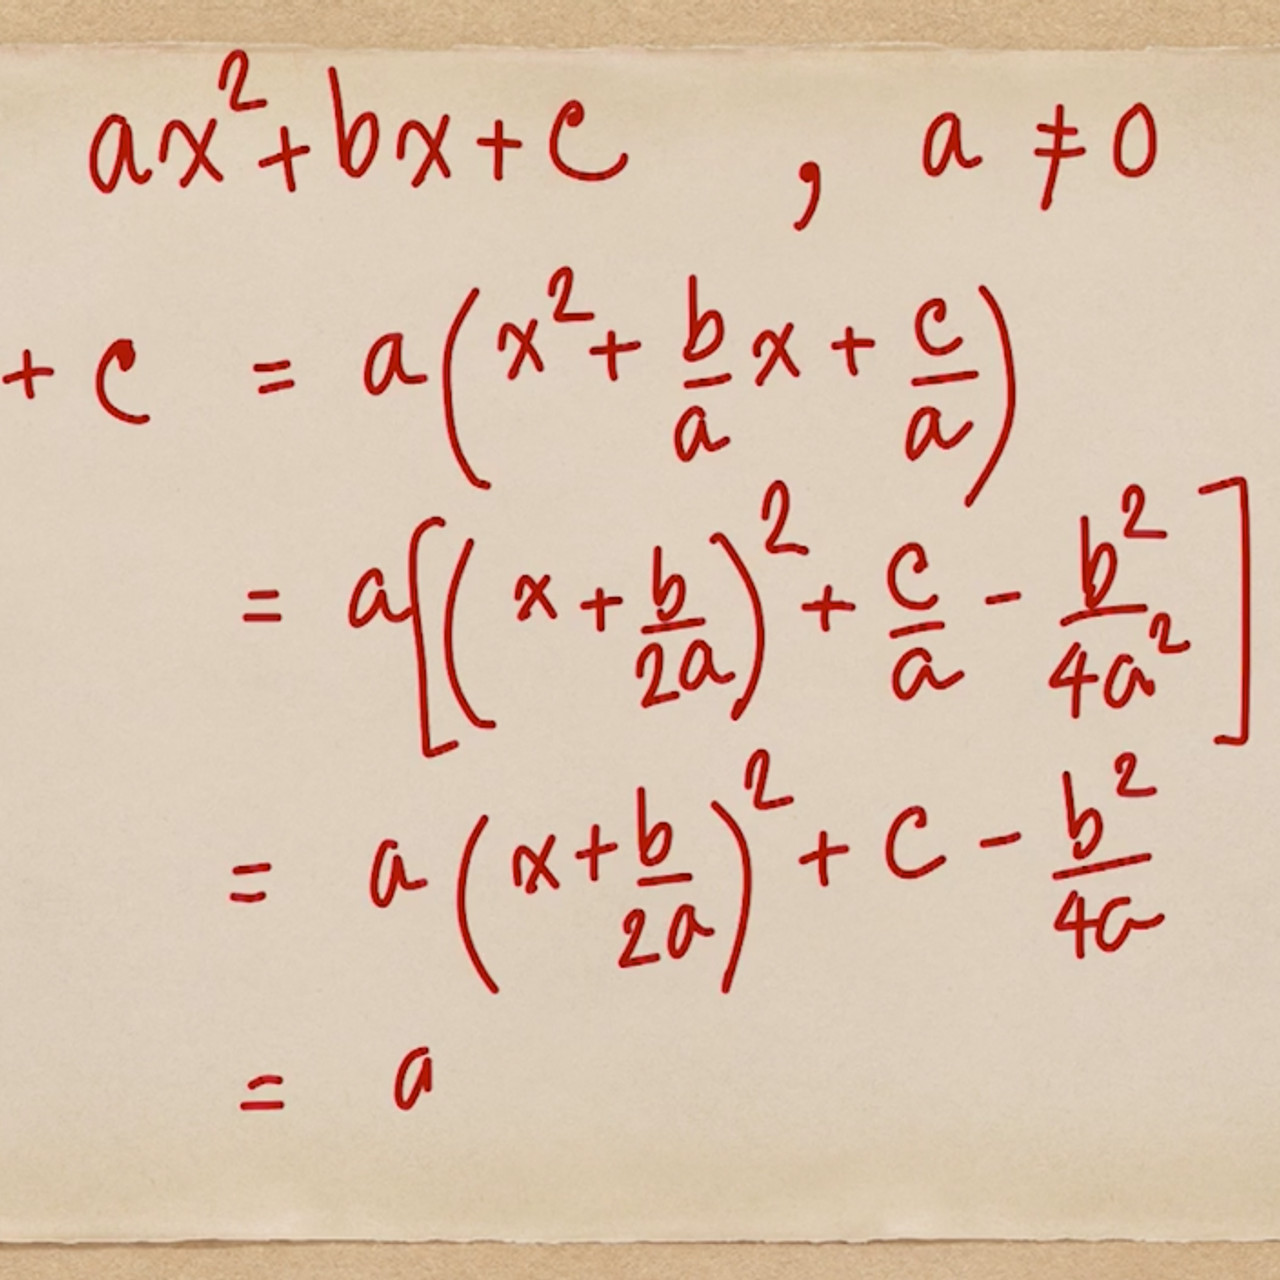 ax² + bx + c , a ≠ 0
+ c = a(x² + b/a x + c/a)
= a[(x + b/2a)² + c/a - b²/4a²]
= a(x + b/2a)² + c - b²/4a
= a